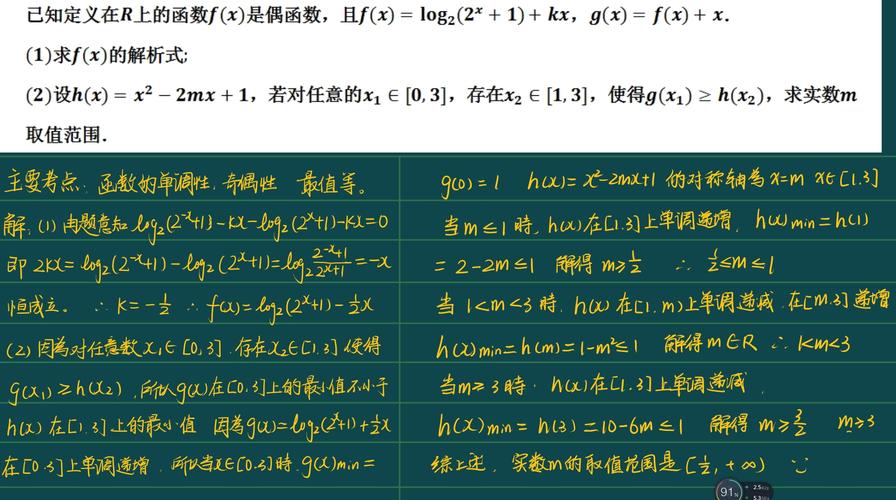 已知定义在R上的函数f(x)是偶函数，且f(x) = log₂(2ˣ + 1) + kx，g(x) = f(x) + x.
(1)求f(x)的解析式;
(2)设h(x) = x² − 2mx + 1，若对任意的x₁ ∈ [0, 3]，存在x₂ ∈ [1, 3]，使得g(x₁) ≥ h(x₂)，求实数m
取值范围.
主要考点：函数的单调性, 奇偶性 最值等。
解：(1) 由题意知 log₂(2⁻ˣ+1)-kx-log₂(2ˣ+1)-kx=0
即 2kx=log₂(2⁻ˣ+1)-log₂(2ˣ+1)=log₂ (2⁻ˣ+1)/(2ˣ+1)=-x
恒成立。 ∴ k=-1/2 ∴ f(x)=log₂(2ˣ+1)-1/2x
(2) 因為对任意数x₁∈[0,3], 存在x₂∈[1.3] 使得
g(x₁)≥h(x₂), 所以g(x)在[0.3]上的最小值不小于
h(x)在[1.3]上的最小值 因為g(x)=log₂(2ˣ+1)+1/2x
在[0.3]上单调递增, 所以当x∈[0.3]時, g(x)min=
g(0)=1 h(x)=x²-2mx+1 的对称轴為x=m x∈[1.3]
当m≤1時, h(x)在[1.3]上单调递增, h(x)min=h(1)
=2-2m≤1 解得 m≥1/2 ∴ 1/2≤m≤1
当 1<m<3 時, h(x)在[1.m)上单调递减, 在[m.3]递增
h(x)min=h(m)=1-m²≤1 解得m∈R ∴ 1<m<3
当m≥3時, h(x)在[1.3]上单调递减,
h(x)min=h(3)=10-6m≤1 解得 m≥3/2 m≥3
综上述, 实数m的取值范围是[1/2,+∞)
91%
2.5
5.3